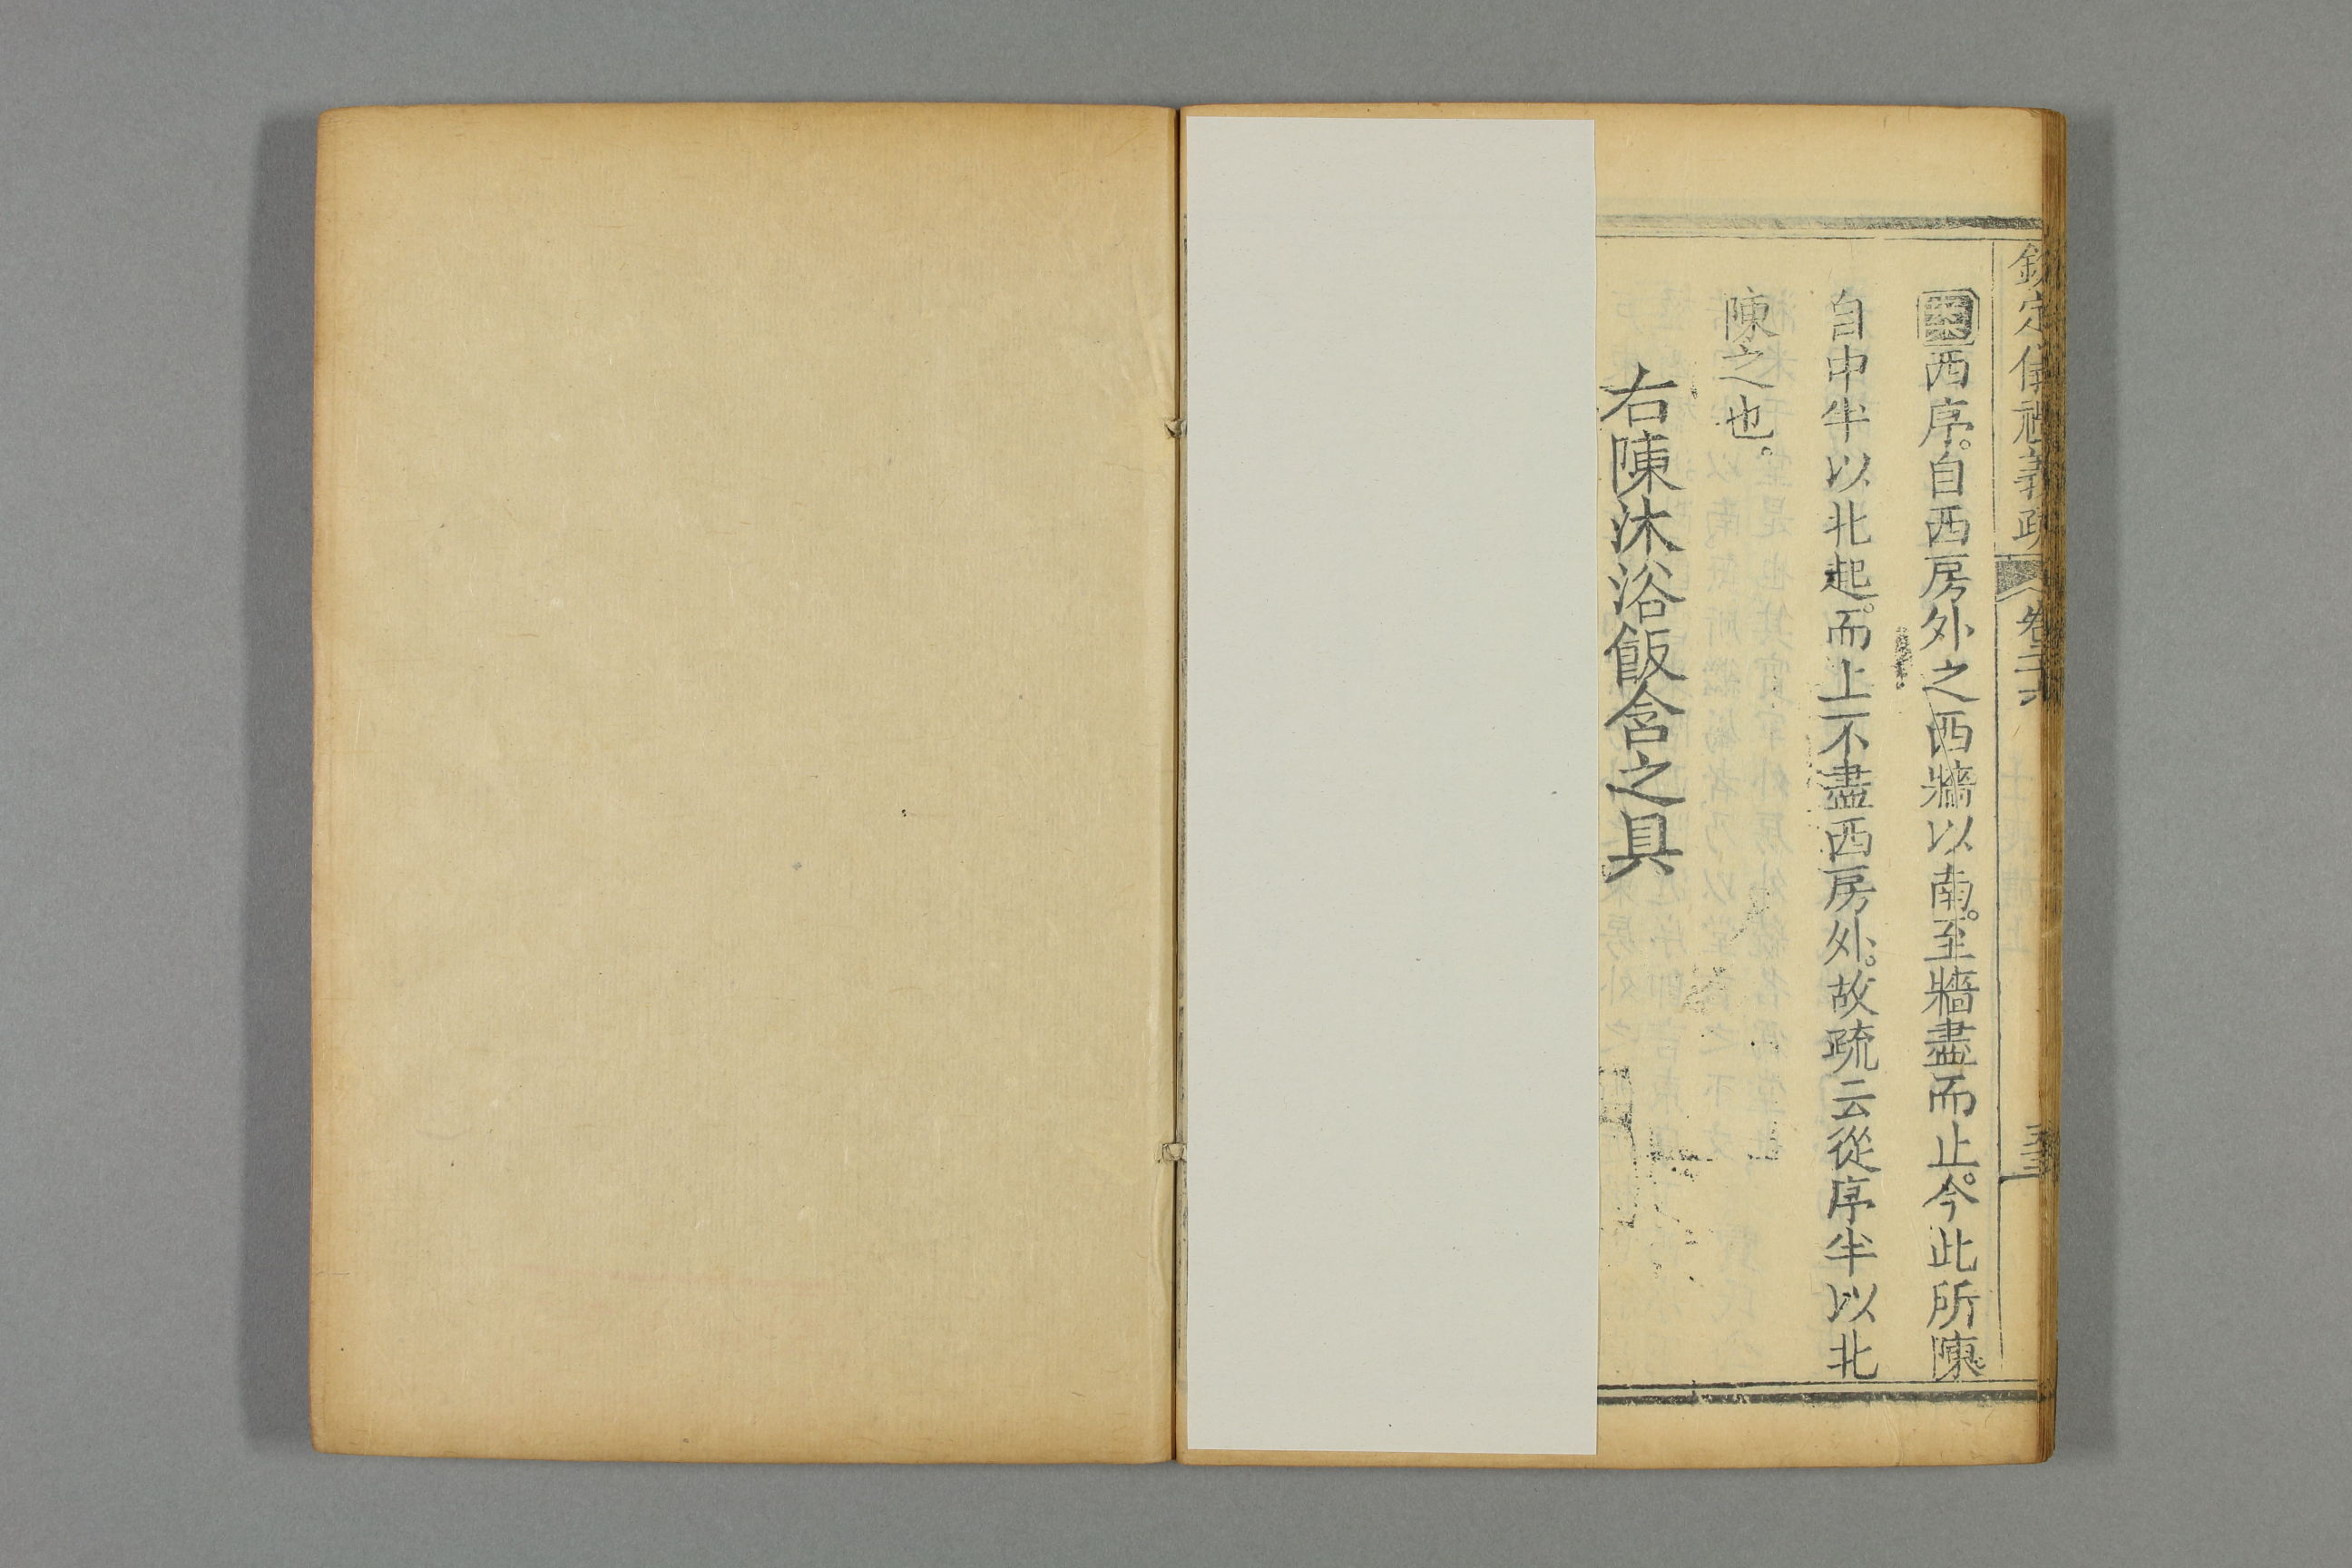 欽定儀禮義疏 卷二十六 至
西序。自西房外之西牆以南。至牆盡而止。今此所陳
自中半以北起。而上不盡西房外。故疏云從序半以北
陳之也。
右陳沐浴飯含之具